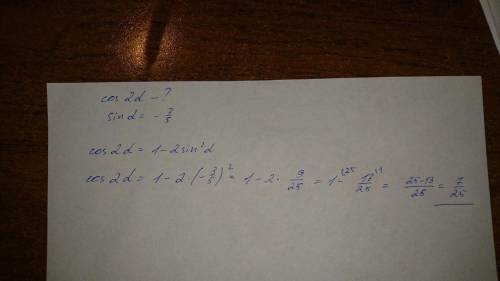 cos 2α - ?
sin α = - 3/5
cos 2α = 1 - 2 sin²α
cos 2α = 1 - 2 · (- 3/5)² = 1 - 2 · 9/25 = 1 - 18/25 = (25-18)/25 = 7/25